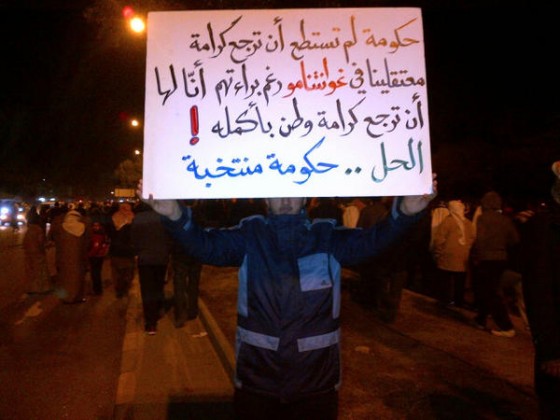 حكومة لم تستطع أن ترجع كرامة
معتقلينا في غوانتنامو رغم براءتهم أنّا لها
أن ترجع كرامة وطن بأكمله !
الحل .. حكومة منتخبة